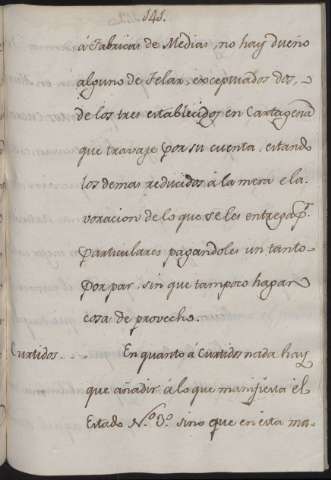 141.
á Fabricas de Medias, no hay dueño
alguno de Telar, exceptuados dos,
de los tres establecidos en Cartagena
que travaje por su cuenta, estando
los demas reducidos á la mera ela-
voracion de lo que se les entrega pr.
particulares pagandoles un tanto
por par, sin que tampoco hagan
cosa de provecho.
Curtidos.... En quanto á Curtidos nada hay
que añadir á lo que manifiesta el
Estado N.º 3.º sino que en esta ma-